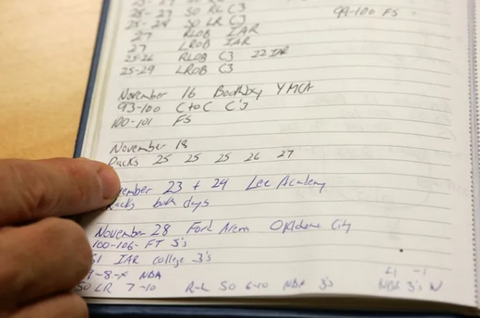 25-27 SO RL C3
25-28 SO LR C3
99-100 FS
27 RLOB IAR
27 LROB IAR
25-26 RLOB C3 22 IAR
25-29 LROB C3
November 16 Boothbay YMCA
93-100 C to C C's
100-101 FS
November 18
Racks 25 25 25 26 27
November 23 + 24 Lee Academy
Racks both days
November 28 Ford Arena Oklahoma City
100-106- FT 3's
51 IAR college 3's
-8-x NBA
SO LR 7-10 R-L SO 6-10 NBA 3's NBA 3's